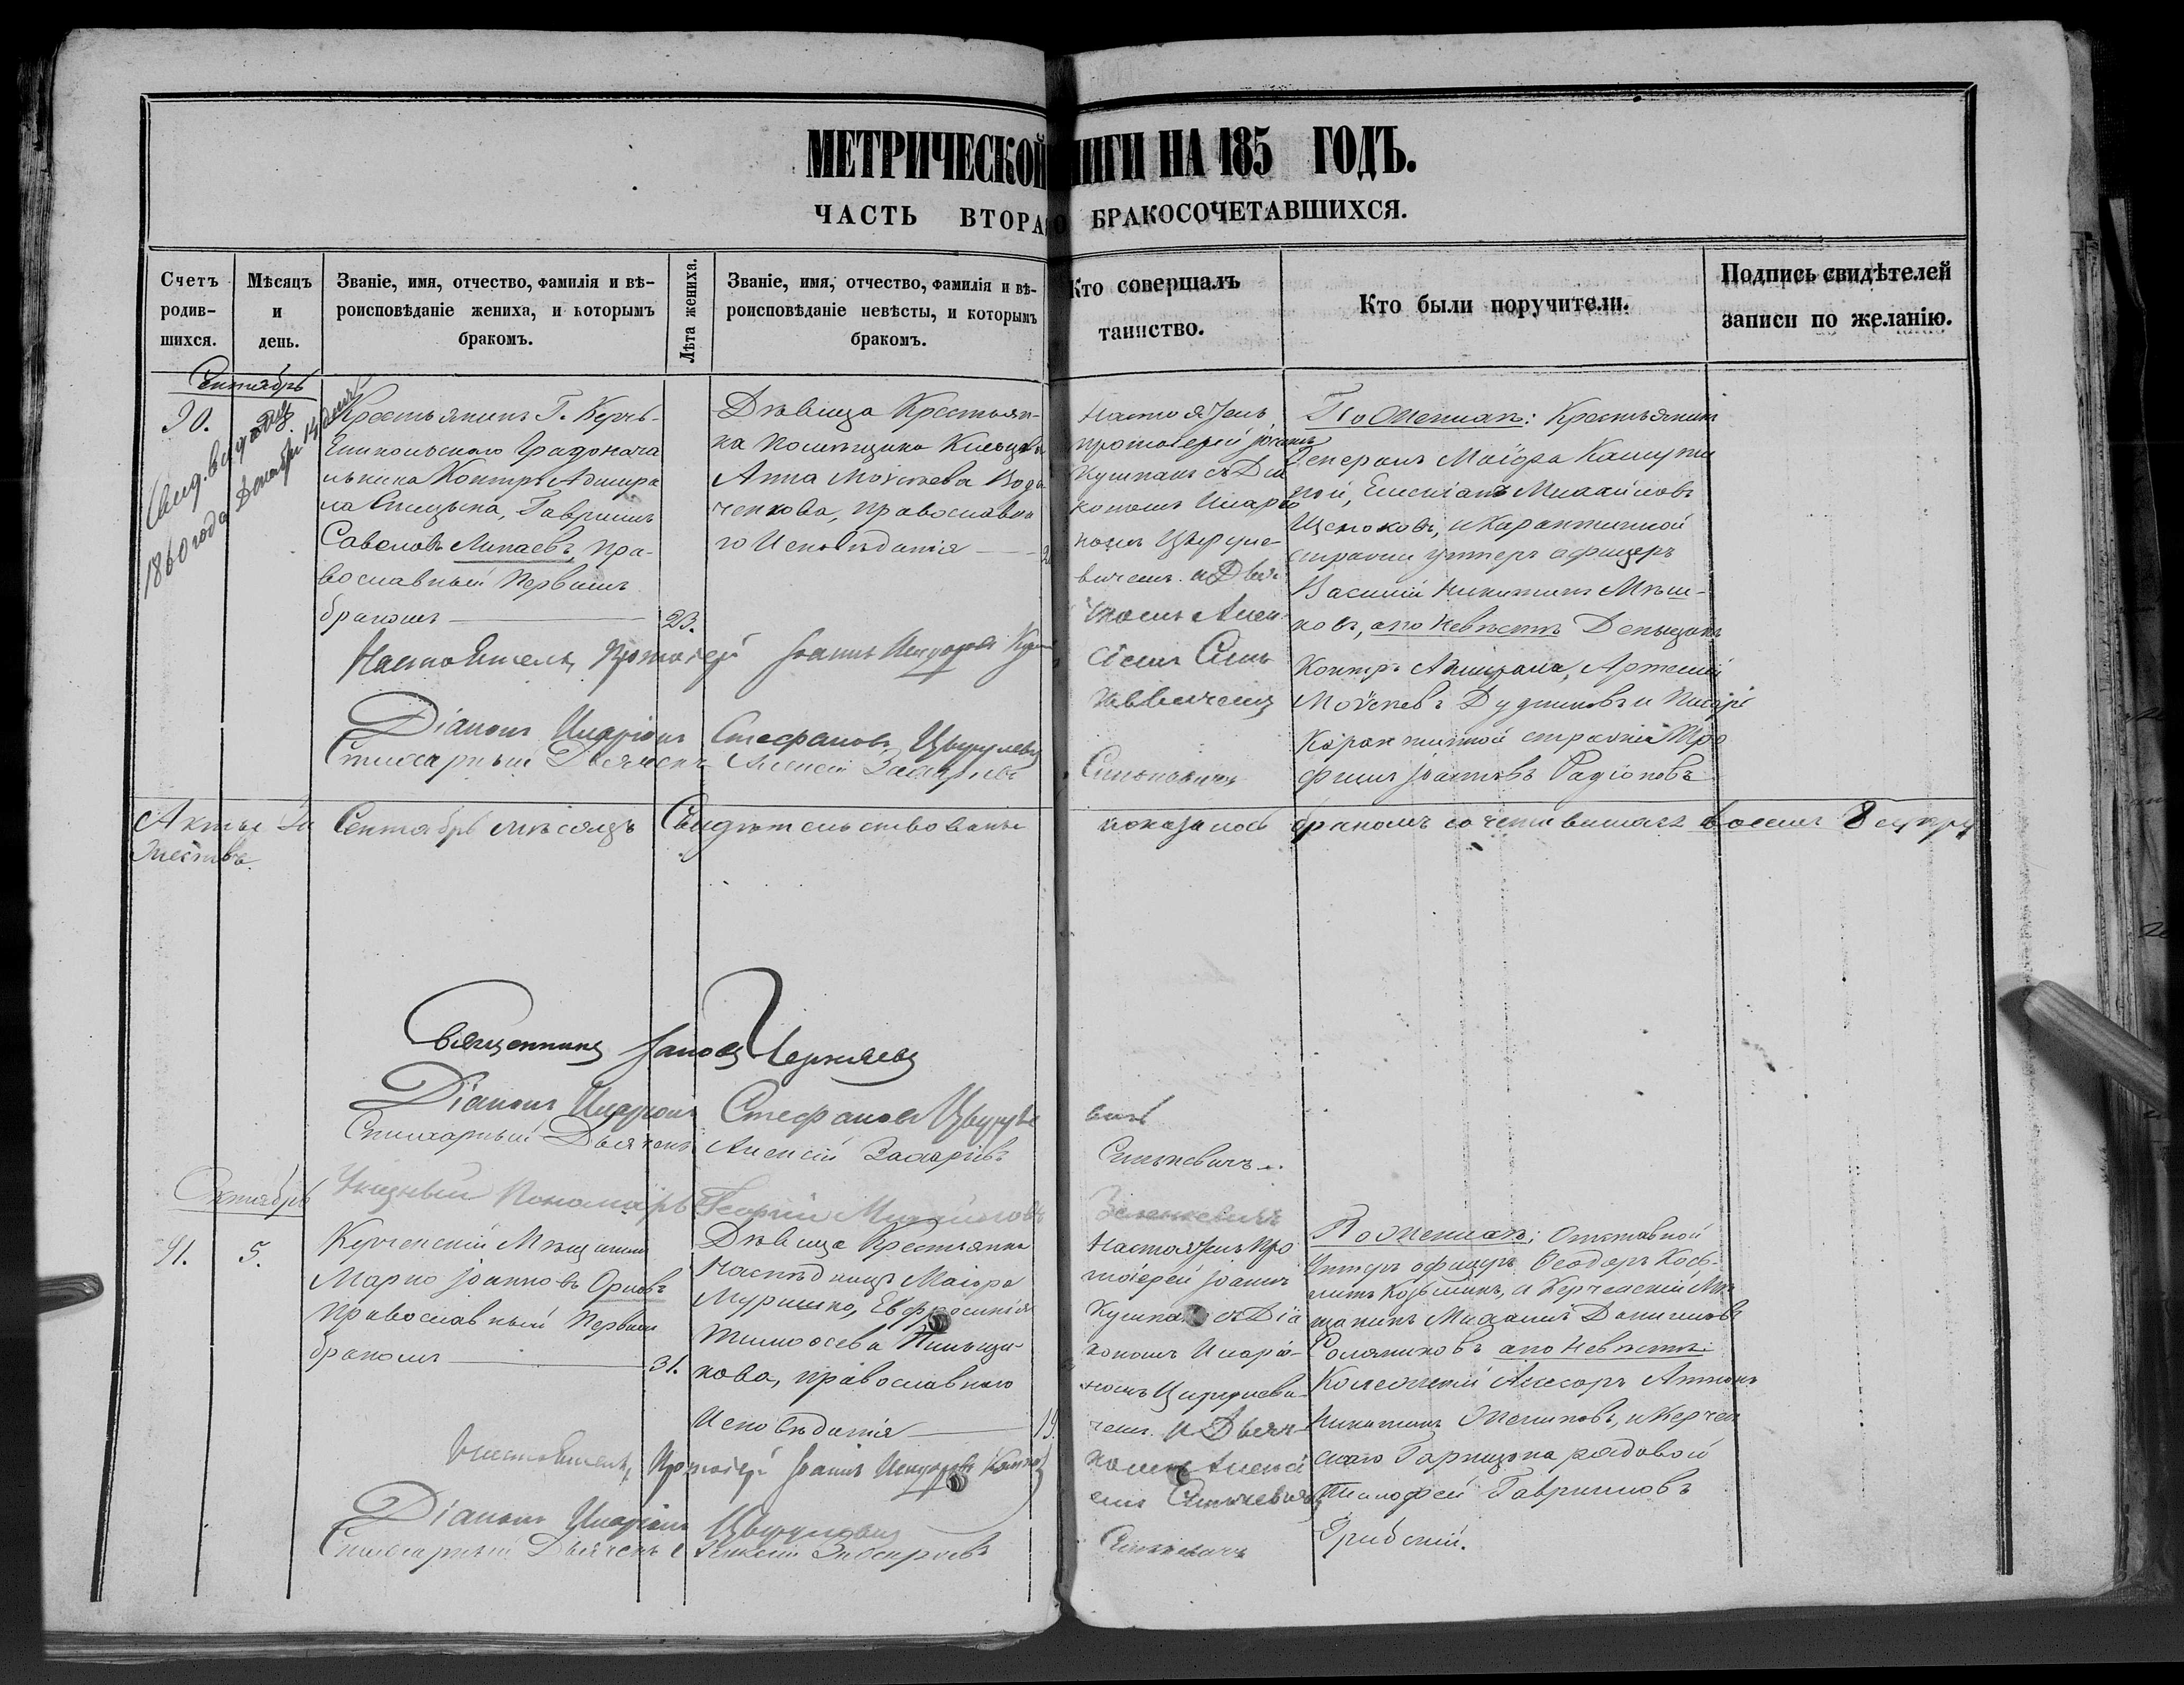 МЕТРИЧЕСКОЙ КНИГИ НА 185 ГОДЪ.
ЧАСТЬ ВТОРАЯ О БРАКОСОЧЕТАВШИХСЯ.
Счетъ родив- шихся.
Мѣсяцъ и день.
Званіе, имя, отчество, фамилія и вѣ-
роисповѣданіе жениха, и которымъ
бракомъ.
Лѣта жениха.
Званіе, имя, отчество, фамилія и вѣ-
роисповѣданіе невѣсты, и которымъ
бракомъ.
Кто совершалъ
таинство.
Кто были поручители.
Подпись свидѣтелей
записи по желанію.
Сентябрь
90.
Свид. выдано
1860 года Декабря 14 дня
Крестьянинъ Г. Керчь-
Еникольскаго Градонача
льника Контръ Адмира
ла Спицына, Гавриилъ
Савеловъ Липаевъ, пра-
вославный Первымъ
бракомъ
23.
Дѣвица Крестьян-
ка Помѣщика
Анна Моисеева
ченкова, православна
го Исповѣданія
Настоятель
протоіерей Іоаннъ
Кушнакъ съ Діа
кономъ Иларіо
номъ Цвѣтуле-
вичемъ и Дьяч-
комъ Алек-
сіемъ Синь-
кевичемъ
По Женихѣ: Крестьянинъ
Генералъ Маіора
Михайловъ
Щелоковъ, и Карантинной
стражи унтеръ офицеръ
Василій Никитинъ
ковъ, а по Невѣстѣ Деньщикъ
Контръ Адмирала, Артемій
Моисеевъ Дудниковъ и Писарь
Карантинной стражи Тро
фимъ Іоанновъ Радіоновъ
Настоятель, Протоіерей Іоаннъ
Діаконъ Иларіонъ Стефановъ
Стихарный Дьячекъ Алексій Захаріевъ
Синькевичъ
Акты За Сентябрь мѣсяцъ Свидѣтельствованы показалось бракомъ сочетавшихся восемь 8
Священникъ Іаковъ Черняевъ
Діаконъ Иларіонъ Стефановъ
вичъ
Стихарный Дьячекъ Алексій Захаріевъ
Синькевичъ
Указный Пономарь Георгій Михайловъ
Зеленкевичъ
Октябрь
91.
5.
Керченскій Мѣщанинъ
Марко Іоанновъ Орловъ
Православный Первымъ
бракомъ
31.
Дѣвица Крестьянка
Наслѣдницъ Маіора
Муришко, Евфросинія
Тимоѳеева
кова, православнаго
Исповѣданія
19.
Настоятель Про
тоіерей Іоаннъ
Кушнакъ съ Діа
кономъ Иларіо-
номъ
чемъ и Дьяч-
комъ Алексі
емъ Синькевичемъ
По Женихѣ; Отставной
Унтеръ офицеръ Ѳеодоръ Кось-
минъ Козьминъ, и Керченскій Мѣ
щанинъ Михаилъ Даниловъ
Солянниковъ а по Невѣстѣ
Колежскій Асесоръ Антонъ
Никитинъ и Керчен
скаго Гарнизона рядовой
Тимофей Гаврииловъ
Грибскій.
Настоятель, Протоіерей Іоаннъ
Діаконъ Иларіонъ
Стихарный Дьячекъ Алексій Захаріевъ
Синькевичъ